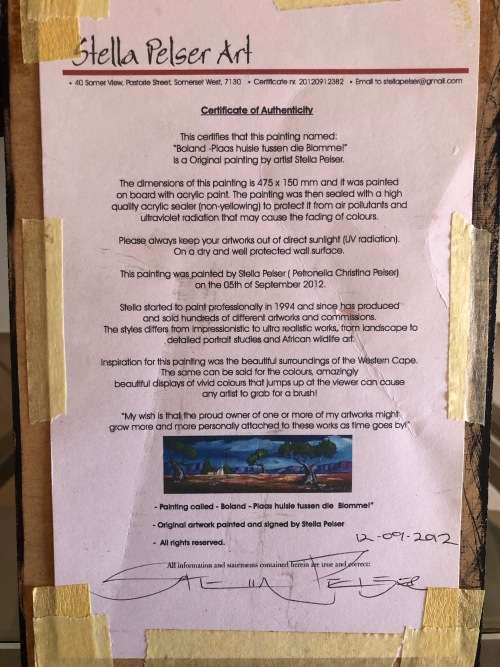 Stella Pelser Art
• 40 Somer View, Pastorie Street, Somerset West, 7130 • Certificate nr. 20120912382 • Email to stellapelser@gmail.com
Certificate of Authenticity
This certifies that this painting named:
"Boland -Plaas huisie tussen die Blomme!"
is a Original painting by artist Stella Pelser.
The dimensions of this painting is 475 x 150 mm and it was painted
on board with acrylic paint. The painting was then sealed with a high
quality acrylic sealer (non-yellowing) to protect it from air pollutants and
ultraviolet radiation that may cause the fading of colours.
Please always keep your artworks out of direct sunlight (UV radiation).
On a dry and well protected wall surface.
This painting was painted by Stella Pelser ( Petronella Christina Pelser)
on the 05th of September 2012.
Stella started to paint professionally in 1994 and since has produced
and sold hundreds of different artworks and commissions.
The styles differs from impressionistic to ultra realistic works, from landscape to
detailed portrait studies and African wildlife art.
Inspiration for this painting was the beautiful surroundings of the Western Cape.
The same can be said for the colours, amazingly
beautiful displays of vivid colours that jumps up at the viewer can cause
any artist to grab for a brush!
"My wish is that the proud owner of one or more of my artworks might
grow more and more personally attached to these works as time goes by!"
- Painting called - Boland - Plaas huisie tussen die Blomme!"
- Original artwork painted and signed by Stella Pelser
- All rights reserved.
12-09-2012
All information and statements contained herein are true and correct:
Stella Pelser